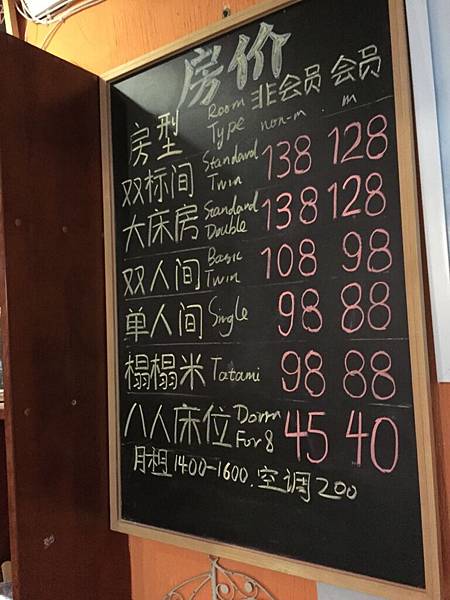 房价
房型 Room Type 非会员 non-m. 会员 m
双标间 Standard Twin 138 128
大床房 Standard Double 138 128
双人间 Basic Twin 108 98
单人间 Single 98 88
榻榻米 Tatami 98 88
八人床位 Dorm For 8 45 40
月租 1400-1600. 空调 200